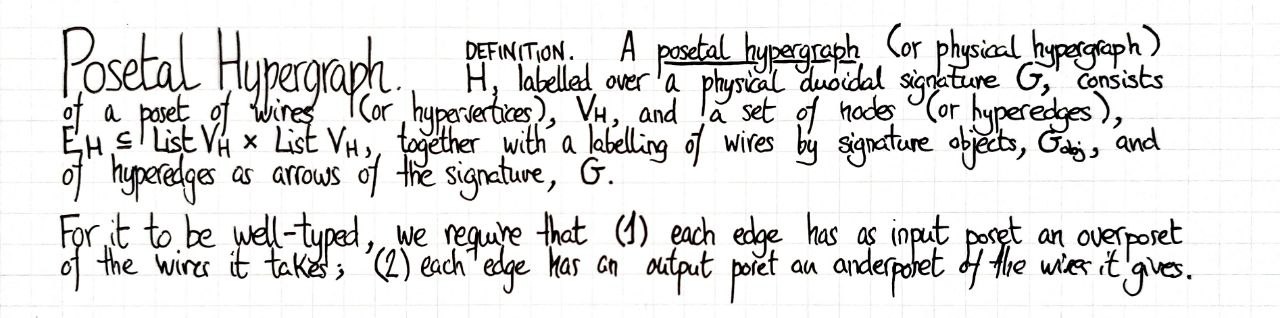 Posetal Hypergraph. DEFINITION. A posetal hypergraph (or physical hypergraph)
H, labelled over a physical duoidal signature G, consists
of a poset of wires (or hypervertices), V_H, and a set of nodes (or hyperedges),
E_H ⊆ List V_H × List V_H, together with a labelling of wires by signature objects, G_obj, and
of hyperedges as arrows of the signature, G.
For it to be well-typed, we require that (1) each edge has as input poset an overposet
of the wires it takes; (2) each edge has an output poset an anderposet of the wires it gives.